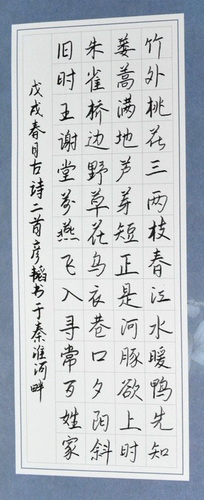 竹外桃花三两枝春江水暖鸭先知
蒌蒿满地芦芽短正是河豚欲上时
朱雀桥边野草花乌衣巷口夕阳斜
旧时王谢堂前燕飞入寻常百姓家
戊戌春日古诗二首彦韬书于秦淮河畔